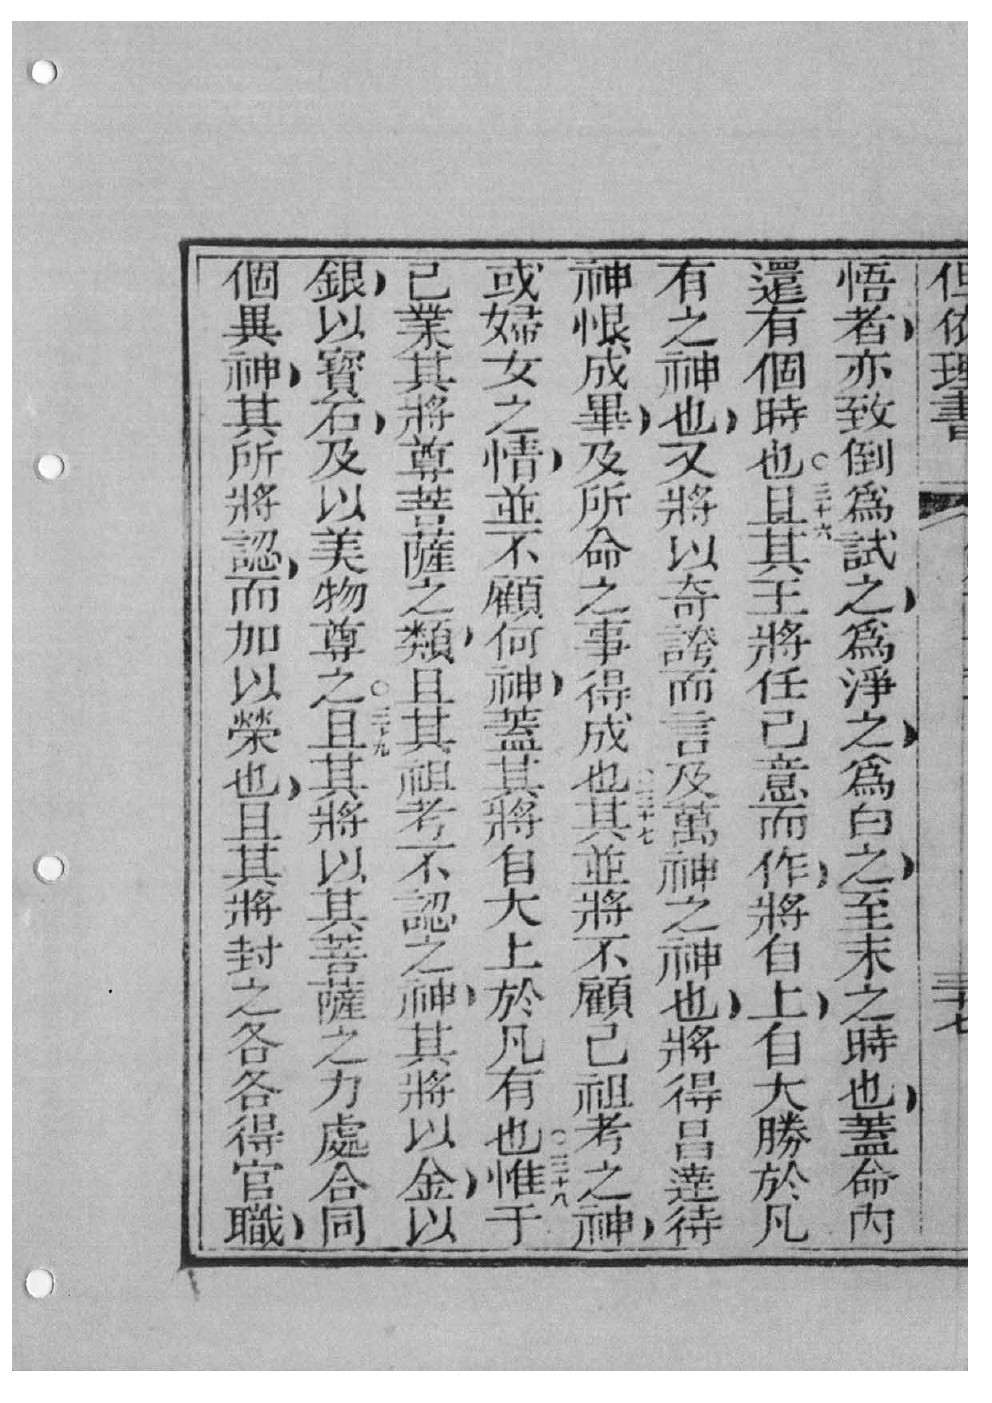 但依理書
悟者亦致倒爲試之爲淨之爲白之至末之時也蓋命內
還有個時也〇三十六且其王將任己意而作將自上自大勝於凡
有之神也又將以奇誇而言及萬神之神也將得昌達待
神恨成畢及所命之事得成也〇三十七其並將不顧己祖考之神
或婦女之情並不顧何神蓋其將自大上於凡有也〇三十八惟于
己業其將尊菩薩之類且其祖考不認之神其將以金以
銀以寶石及以美物尊之〇三十九且其將以其菩薩之力處合同
個異神其所將認而加以榮也且其將封之各各得官職